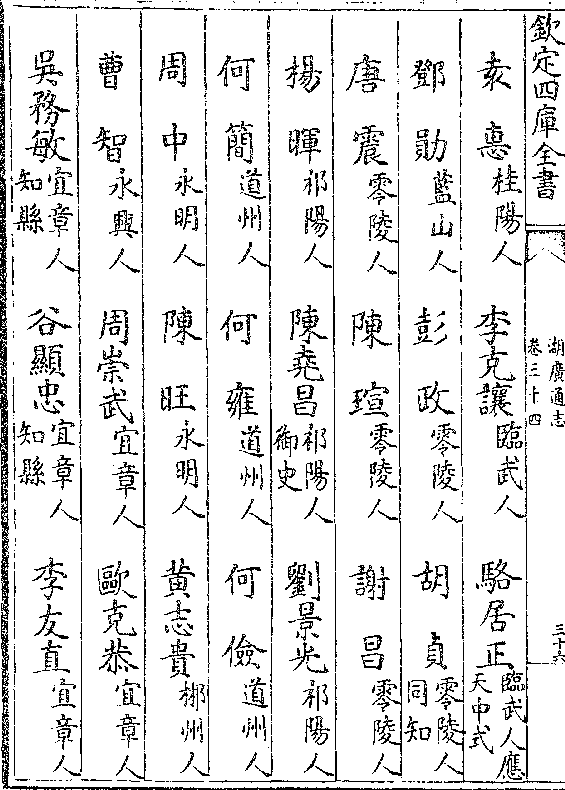 欽定四庫全書
湖廣通志
卷三十四
三十六
袁惪桂陽人 李克讓臨武人 駱居正臨武人應天中式
鄧勛藍山人 彭政零陵人 胡貞零陵人同知
唐震零陵人 陳瑄零陵人 謝昌零陵人
楊暉祁陽人 陳堯昌祁陽人御史 劉景光祁陽人
何簡道州人 何雍道州人 何儉道州人
周中永明人 陳旺永明人 黄志貴郴州人
曹智永興人 周崇武宜章人 歐克恭宜章人
吳務敏宜章人知縣 谷顯忠宜章人知縣 李友直宜章人